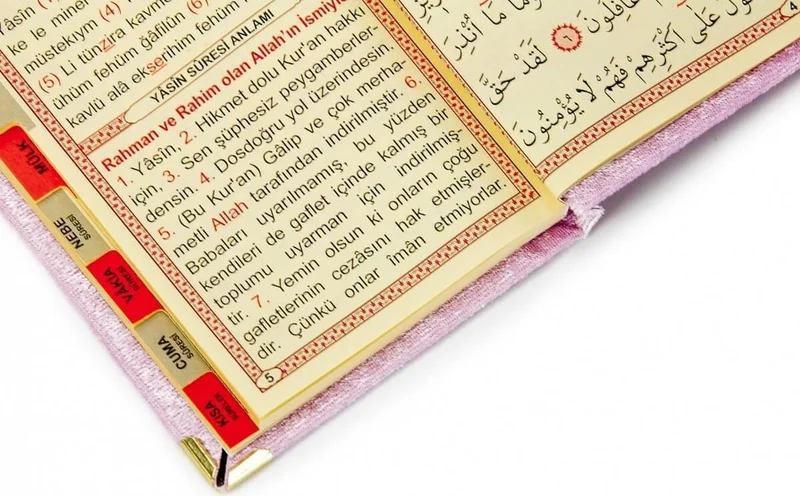 Yâsîn
ke le mine
müstekıym (4)
(5) Li tünzira kavme
ühüm fehüm ğâfilûn (6)
kavlü alâ ekserihim fehüm
YÂSÎN SÛRESİ ANLAMI
Rahman ve Rahim olan Allah'ın İsmiyle
1. Yâsîn, 2. Hikmet dolu Kur'an hakkı
için, 3. Sen şüphesiz peygamberler-
densin. 4. Dosdoğru yol üzerindesin.
5. (Bu Kur'an) Gâlip ve çok merha-
metli Allah tarafından indirilmiştir. 6.
Babaları uyarılmamış, bu yüzden
kendileri de gaflet içinde kalmış bir
toplumu uyarman için indirilmiş-
tir. 7. Yemin olsun ki onların çoğu
gafletlerinin cezâsını hak etmişler-
dir. Çünkü onlar îmân etmiyorlar.
5
MÜLK
NEBE
SÛRESİ
VÂKIA
SÛRESİ
CUMA
SÛRESİ
KISA
SÛRELER
4
مَا أُنْذِرَ
غَافِلُونَ ٦ لَقَدْ حَقَّ
عَلٰى أَكْثَرِهِمْ فَهُمْ لَا يُؤْمِنُونَ